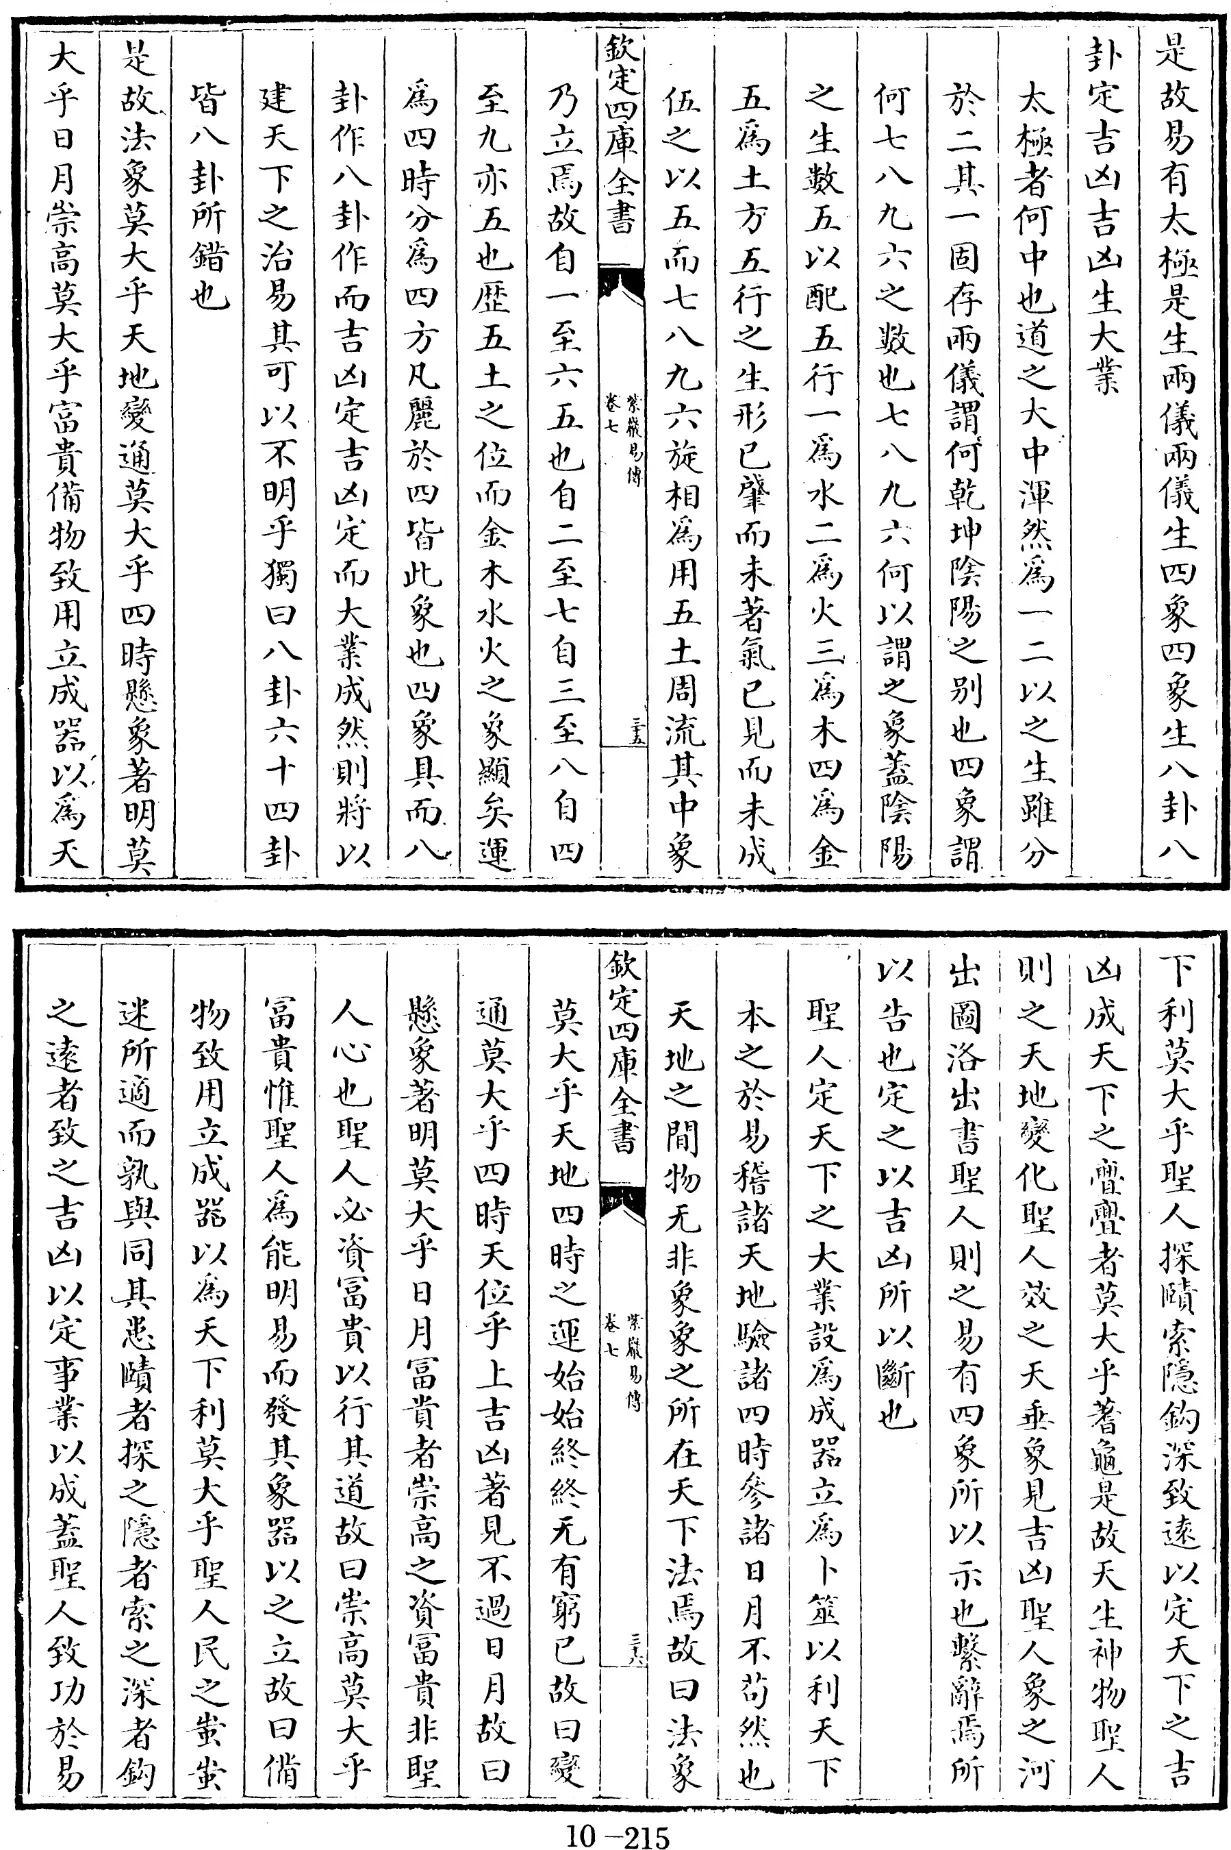 是故易有太極是生兩儀兩儀生四象四象生八卦八
卦定吉凶吉凶生大業
太極者何中也道之大中渾然為一二以之生雖分
於二其一固存兩儀謂何乾坤陰陽之别也四象謂
何七八九六之數也七八九六何以謂之象蓋陰陽
之生數五以配五行一為水二為火三為木四為金
五為土方五行之生形已肇而未著氣已見而未成
伍之以五而七八九六旋相為用五土周流其中象
欽定四庫全書
紫巖易傳
卷七
三五
乃立焉故自一至六五也自二至七自三至八自四
至九亦五也歴五土之位而金木水火之象顯矣運
為四時分為四方凡麗於四皆此象也四象具而八
卦作八卦作而吉凶定吉凶定而大業成然則將以
建天下之治易其可以不明乎獨曰八卦六十四卦
皆八卦所錯也
是故法象莫大乎天地變通莫大乎四時懸象著明莫
大乎日月崇高莫大乎富貴備物致用立成器以為天
下利莫大乎聖人探賾索隱鈎深致遠以定天下之吉
凶成天下之亹亹者莫大乎蓍龜是故天生神物聖人
則之天地變化聖人效之天垂象見吉凶聖人象之河
出圖洛出書聖人則之易有四象所以示也繫辭焉所
以告也定之以吉凶所以斷也
聖人定天下之大業設為成器立為卜筮以利天下
本之於易稽諸天地驗諸四時參諸日月不茍然也
天地之間物无非象象之所在天下法焉故曰法象
欽定四庫全書
紫巖易傳
卷七
三六
莫大乎天地四時之運始始終終无有窮已故曰變
通莫大乎四時天位乎上吉凶著見不過日月故曰
懸象著明莫大乎日月富貴者崇高之資富貴非聖
人心也聖人必資富貴以行其道故曰崇高莫大乎
富貴惟聖人為能明易而發其象器以之立故曰備
物致用立成器以為天下利莫大乎聖人民之蚩蚩
迷所適而孰與同其患賾者探之隱者索之深者鈎
之遠者致之吉凶以定事業以成蓋聖人致功於易
10-215